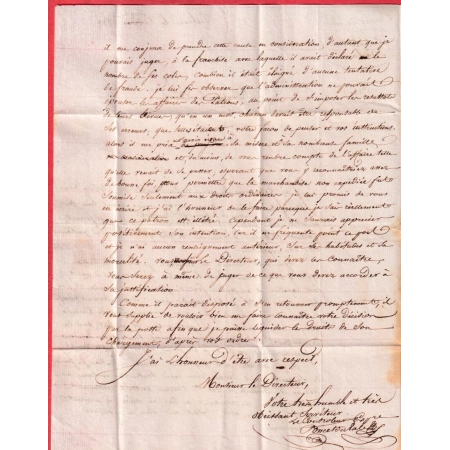 il me conjura de prendre cette cause en considération, d'autant que je
pouvais juger à la franchise avec laquelle il avait déclaré le
nombre de ses colis, combien il était éloigné d'aucune tentative
de fraude. je lui fis observer que l'administration ne pouvait
les affaires des Patrons, au point de supporter les resultats
de leurs qu'en un mot, chacun devait être responsable de
ses votre façon de penser et vos instructions.
alors il me pria la misère et sa nombreuse famille
en considération et du moins, de vous rendre compte de l'affaire telle
qu'elle venait de se passer, esperant que vous y reconnaîtriez assez
de bonne foi pour permettre que la marchandise non expediée fut
soumise seulement aux droits ordinaires. je lui promis de vous
écrire et j'ai l'honneur de le faire parceque je sais réellement
que ce patron est illétré. Cependant je ne saurais apprécier
positivement son intention, car il ne fréquente point ce port
et je n'ai aucun renseignement antérieur, sur ses habitudes et sa
moralité. vous Monsieur le Directeur, qui devez les connaître,
vous serez à même de juger de ce que vous devez accorder à
sa justification.
Comme il paraît disposé à s'en retourner promptement, il
vous supplie de vouloir bien me faire connaître votre décision
par la poste afin que je puisse liquider les droits de son
chargement, d'après vos ordres.
J'ai l'honneur d'être avec respect,
Monsieur le Directeur,
Votre très humble et très
obéissant Serviteur
Le Controleur